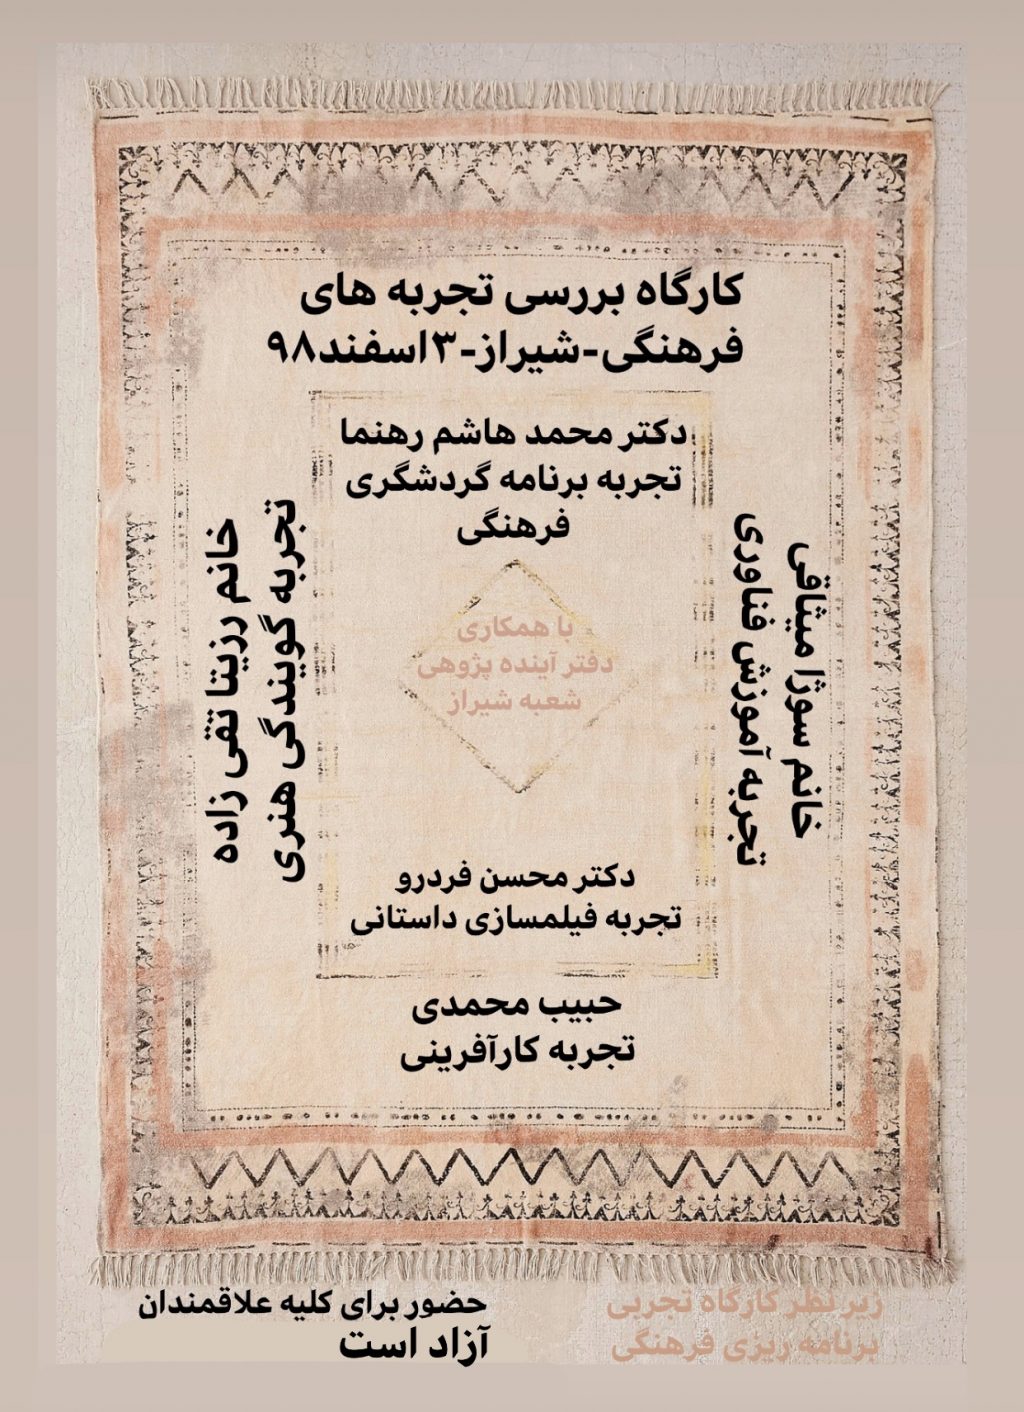 کارگاه بررسی تجربه های
فرهنگی-شیراز-۳اسفند۹۸
دکتر محمد هاشم رهنما
تجربه برنامه گردشگری
فرهنگی
خانم سوژا میثاقی
تجربه آموزش فناوری
خانم رزیتا تقی زاده
تجربه گویندگی هنری
با همکاری
دفتر آینده پژوهی
شعبه شیراز
دکتر محسن فردرو
تجربه فیلمسازی داستانی
حبیب محمدی
تجربه کارآفرینی
زیر نظر کارگاه تجربی
برنامه ریزی فرهنگی
حضور برای کلیه علاقمندان
آزاد است